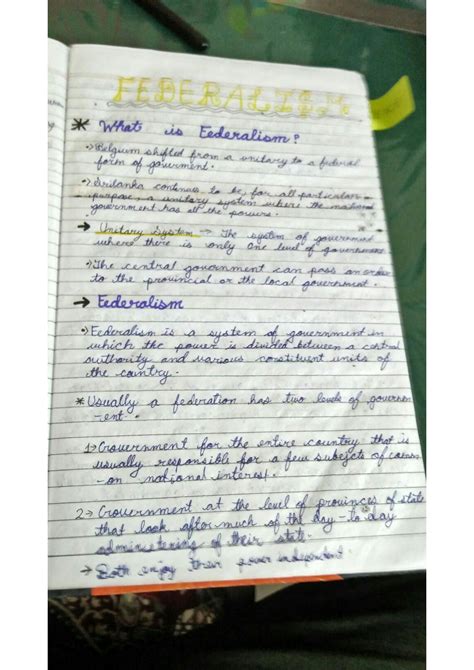 FEDERALISM
* What is Federalism?
•) Belgium shifted from a unitary to a federal
form of government.
•) Srilanka continues to be for all particular
purpose, a unitary system where the national
government has all the powers.
→ Unitary System → The system of government
where there is only one level of government
•) The central government can pass an order
to the provincial or the local government.
→ Federalism
•) Federalism is a system of government in
which the power is divided between a central
authority and various constituent units of
the country.
* Usually a federation has two levels of governm
-ent.
1→ Government for the entire country that is
usually responsible for a few subejcts of comm
-on national interest.
2→ Government at the level of provinces of state
that look after much of the day-to day
administering of their state.
→ Both enjoy their power independent.